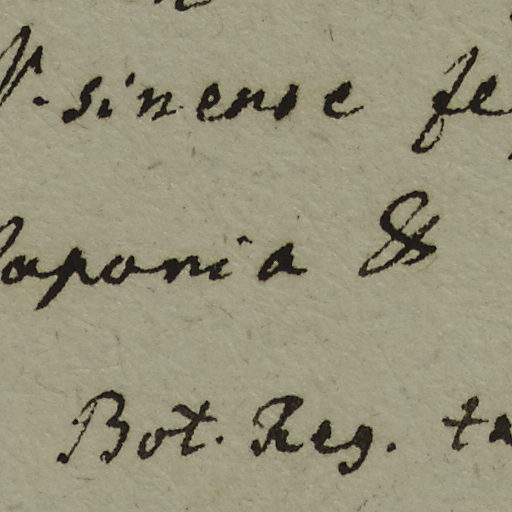 sinense
Japonia &
Bot. Reg.